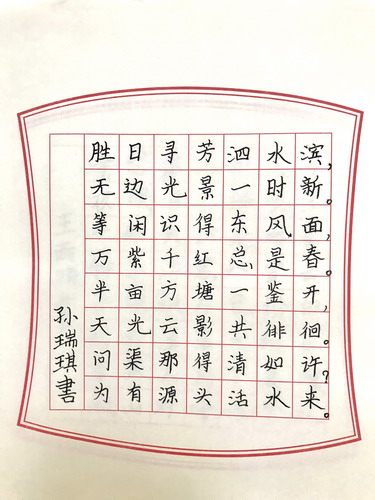 胜日寻芳泗水滨,
无边光景一时新。
等闲识得东风面,
万紫千红总是春。
半亩方塘一鉴开,
天光云影共徘徊。
问渠那得清如许?
为有源头活水来。
孙瑞琪書